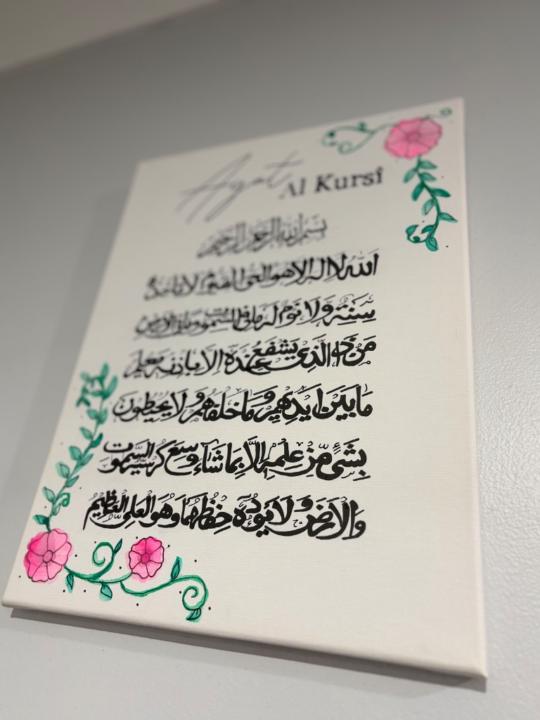 Ayat
Al Kursi
بسم الله الرحمن الرحيم
الله لا اله الا هو الحي القيوم لا تاخذه
سنة ولا نوم له ما في السموت وما في الارض
من ذا الذي يشفع عنده الا باذنه يعلم
ما بين ايديهم وما خلفهم ولا يحيطون
بشئ من علمه الا بما شاء وسع كرسيه السموت
والارض ولا يوده حفظهما وهو العلي العظيم